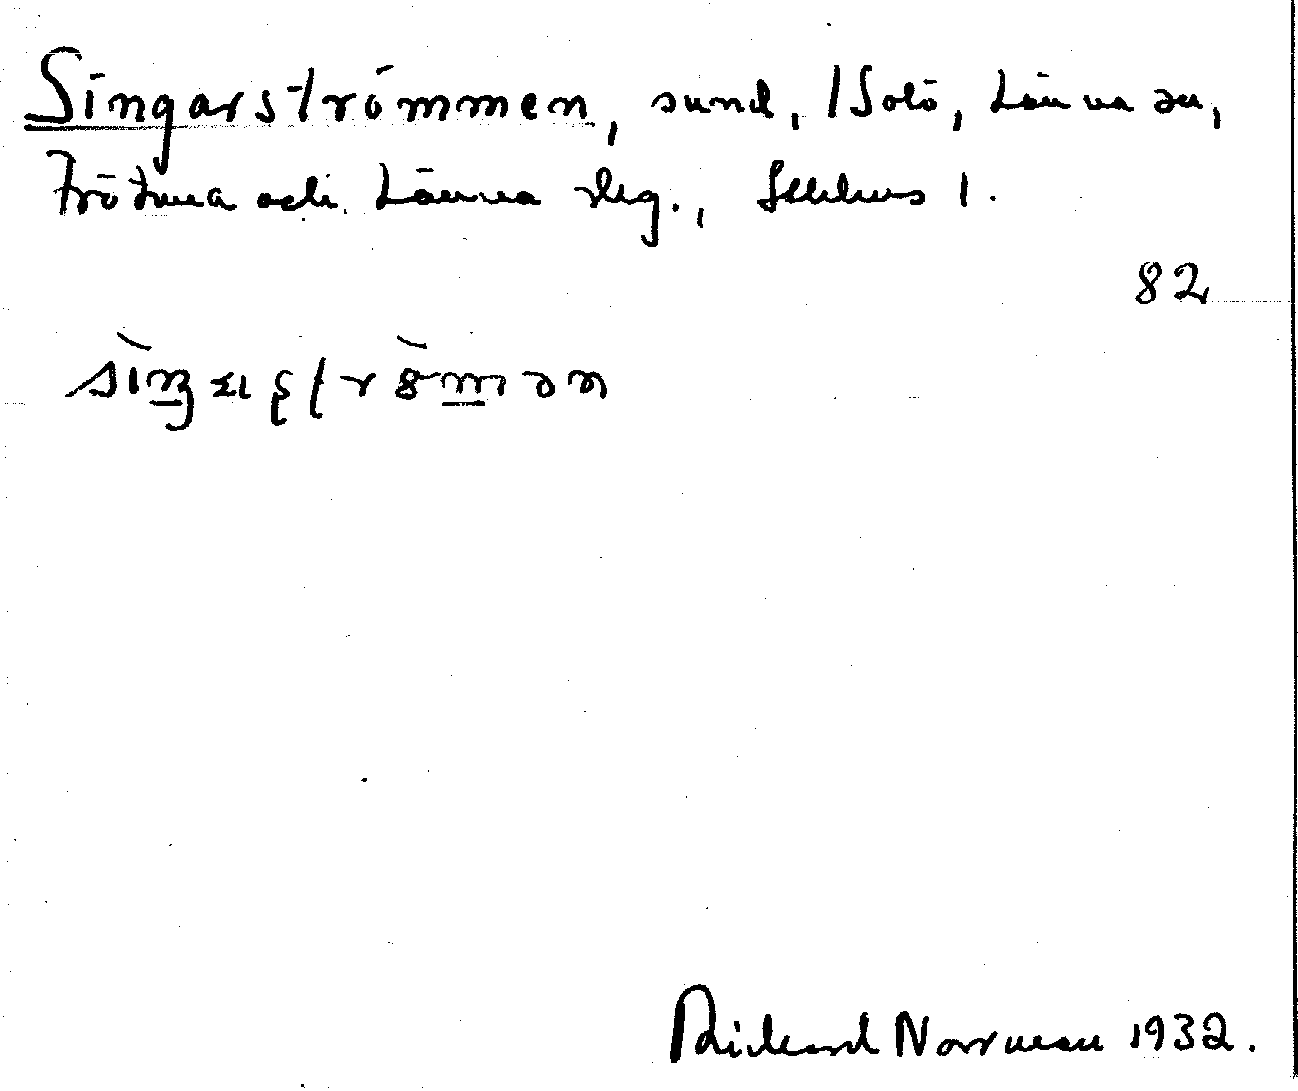 Singarströmmen, sund, Isolö, Länna sn,
Frötuna och Länna skg., Sthlms l.
82
Rickard Norrman 1932.